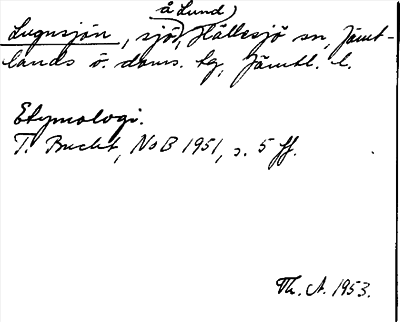 å Lund)
Lugnsjön, sjö, Hällesjö sn, Jämt-
lands ö. doms. tg, Jämtl. l.
Etymologi.
T. Bucht, NoB 1951, s. 5 ff.
Th. A. 1953.